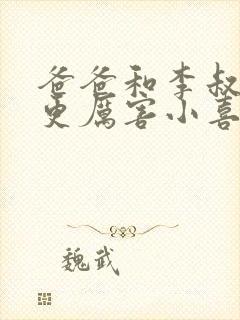 爸爸和李叔
更厲害小喜
魏武